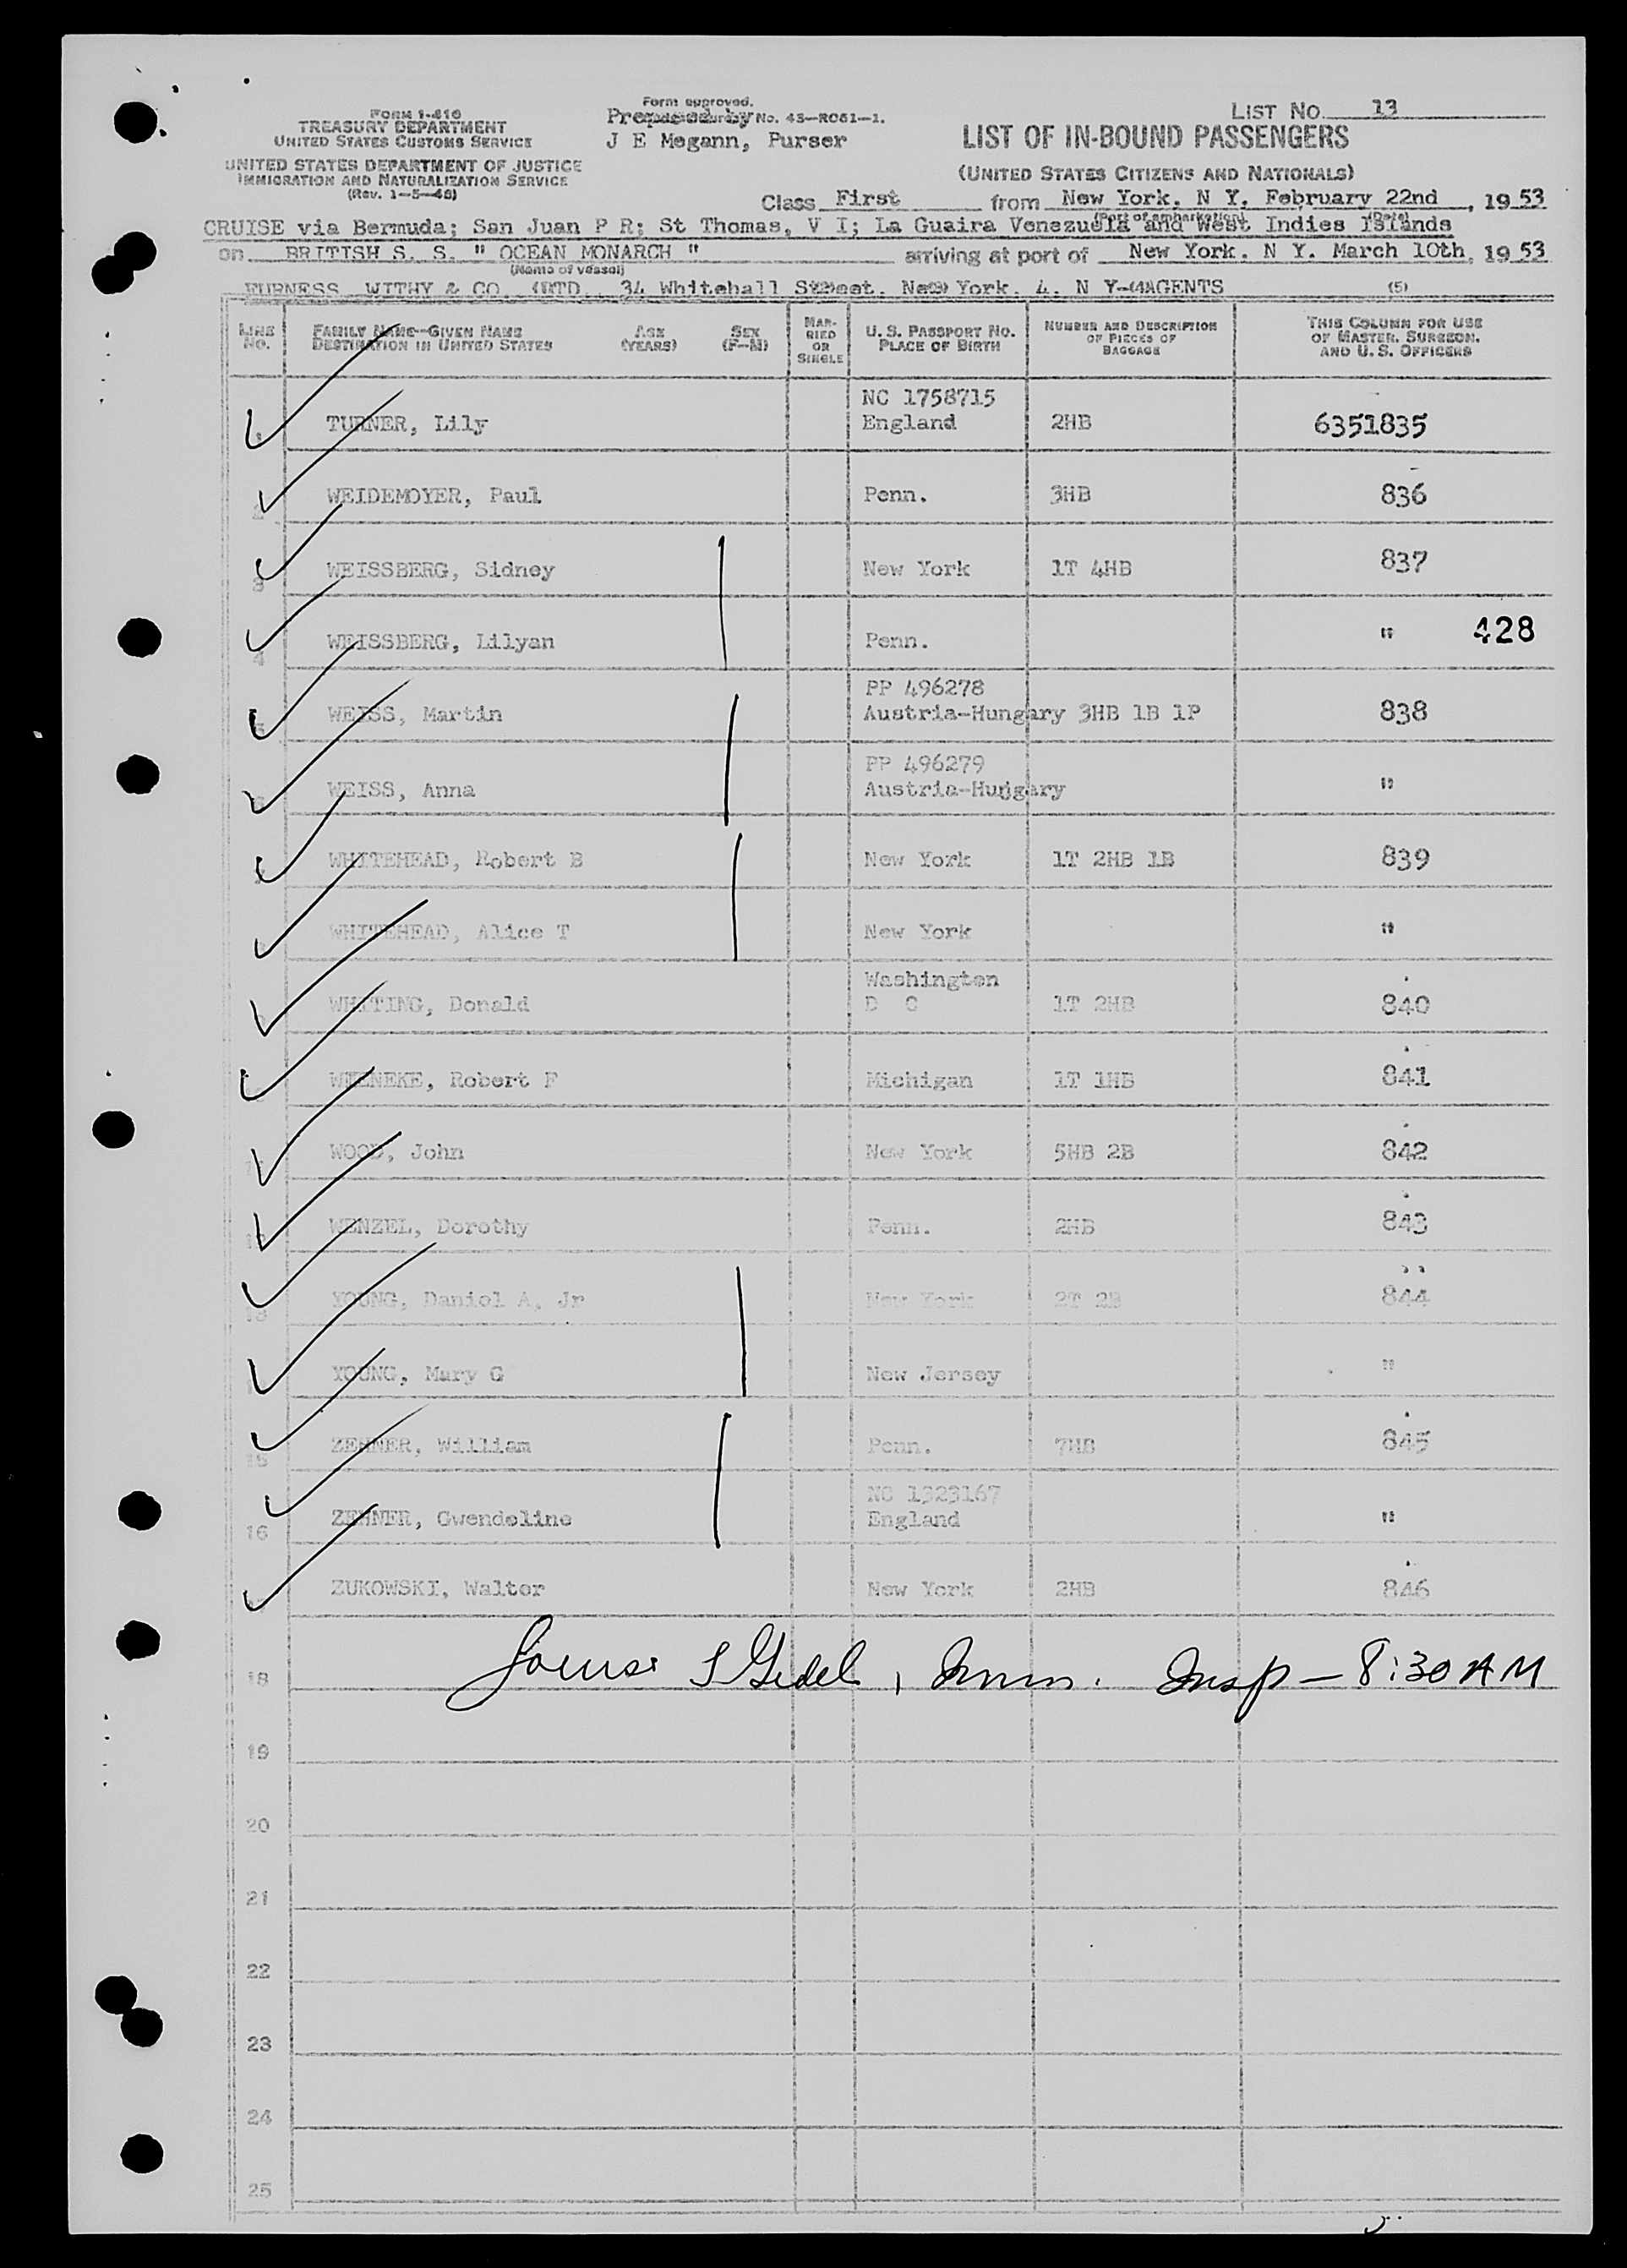 FORM I-416
TREASURY DEPARTMENT
UNITED STATES CUSTOMS SERVICE
UNITED STATES DEPARTMENT OF JUSTICE
IMMIGRATION AND NATURALIZATION SERVICE
(Rev. 1-5-48)
Form approved.
Prepared by No. 43-R061-1.
J E Megann, Purser
LIST No. 13
LIST OF IN-BOUND PASSENGERS
(UNITED STATES CITIZENS AND NATIONALS)
Class First from New York. N Y. February 22nd, 19 53
(Port of embarkation) (Date)
CRUISE via Bermuda; San Juan P R; St Thomas, V I; La Guaira Venezuela and West Indies Islands
on BRITISH S. S. " OCEAN MONARCH " arriving at port of New York. N Y. March 10th, 19 53
(Name of vessel)
FURNESS WITHY & CO. LTD. 34 Whitehall Street. New York. 4. N Y-AGENTS (5)
LINE No. FAMILY NAME—GIVEN NAME DESTINATION IN UNITED STATES AGE (YEARS) SEX (F—M) MARRIED OR SINGLE U. S. PASSPORT No. PLACE OF BIRTH NUMBER AND DESCRIPTION OF PIECES OF BAGGAGE THIS COLUMN FOR USE OF MASTER, SURGEON, AND U. S. OFFICERS
NC 1758715
TURNER, Lily England 2HB 6351835
WEIDEMOYER, Paul Penn. 3HB 836
3 WEISSBERG, Sidney New York 1T 4HB 837
4 WEISSBERG, Lilyan Penn. " 428
PP 496278
WEISS, Martin Austria-Hungary 3HB 1B 1P 838
PP 496279
WEISS, Anna Austria-Hungary "
WHITEHEAD, Robert B New York 1T 2HB 1B 839
WHITEHEAD, Alice T New York "
Washington
WHITING, Donald D C 1T 2HB 840
WIENEKE, Robert F Michigan 1T 1HB 841
WOOD, John New York 5HB 2B 842
WENZEL, Dorothy Penn. 2HB 843
YOUNG, Daniel A, Jr New York 2T 2B 844
YOUNG, Mary G New Jersey "
15 ZEHNER, William Penn. 7HB 845
NC 1323167
16 ZEHNER, Gwendoline England "
ZUKOWSKI, Walter New York 2HB 846
18 Imm. Insp — 8:30 AM
19
20
21
22
23
24
25